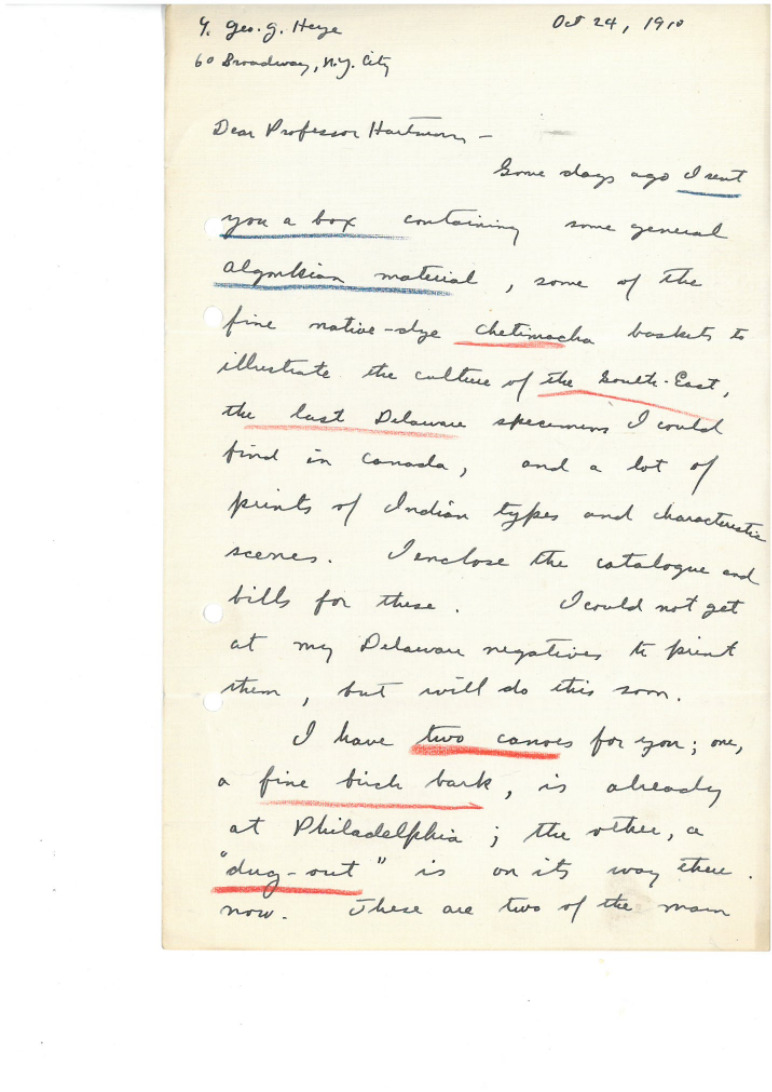 ℅ Geo. G. Heye Oct 24, 1910
60 Broadway, N.Y. City
Dear Professor Hartman, –
Some days ago I sent
you a box containing some general
Algonkian material, some of the
fine native-dye Chetimacha baskets to
illustrate the culture of the South-East,
the last Delaware specimens I could
find in Canada, and a lot of
prints of Indian types and characteristic
scenes. I enclose the catalogue and
bills for these. I could not get
at my Delaware negatives to print
them, but will do this soon.
I have two canoes for you; one,
a fine birch bark, is already
at Philadelphia; the other, a
"dug-out" is on its way there.
now. These are two of the main